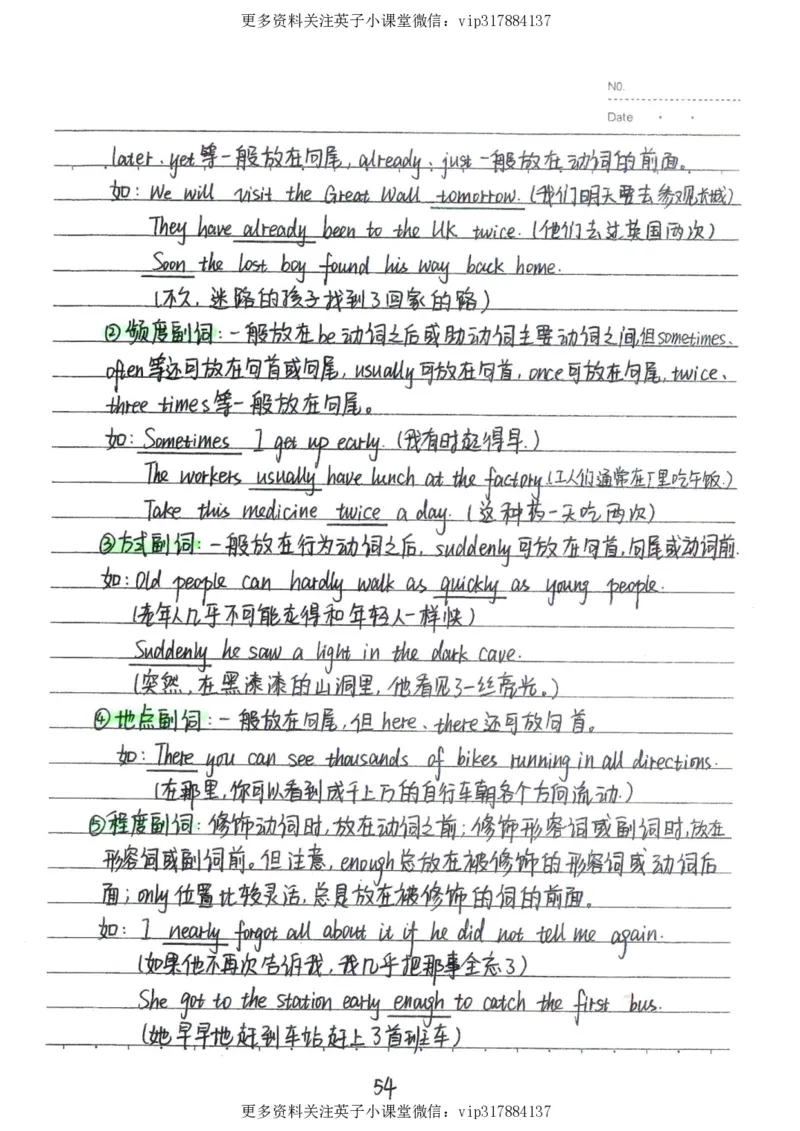 更多资料关注英子小课堂微信：vip317884137
NO.
Date
later、yet等一般放在句尾，already、just一般放在动词的前面。
如：We will visit the Great Wall tomorrow.（我们明天要去参观长城）
They have already been to the UK twice.（他们去过英国两次）
Soon the lost boy found his way back home.
（不久，迷路的孩子找到了回家的路）
②频度副词：一般放在be动词之后或助动词主要动词之间，但sometimes、
often等还可放在句首或句尾，usually可放在句首，once可放在句尾，twice、
three times等一般放在句尾。
如：Sometimes I get up early.（我有时起得早.）
The workers usually have lunch at the factory.（工人们通常在厂里吃午饭.）
Take this medicine twice a day.（这种药一天吃两次）
③方式副词：一般放在行为动词之后，suddenly可放在句首，句尾或动词前.
如：Old people can hardly walk as quickly as young people.
（老年人几乎不可能走得和年轻人一样快）
Suddenly he saw a light in the dark cave.
（突然，在黑漆漆的山洞里，他看见了一丝亮光。）
④地点副词：一般放在句尾，但here、there还可放句首。
如：There you can see thousands of bikes running in all directions.
（在那里，你可以看到成千上万的自行车朝各个方向流动.）
⑤程度副词：修饰动词时，放在动词之前；修饰形容词或副词时，放在
形容词或副词前。但注意，enough总放在被修饰的形容词或动词后
面；only位置比较灵活，总是放在被修饰的词的前面。
如：I nearly forgot all about it if he did not tell me again.
（如果他不再次告诉我，我几乎把那事全忘了）
She got to the station early enough to catch the first bus.
（她早早地赶到车站赶上了首班车）
54
更多资料关注英子小课堂微信：vip317884137